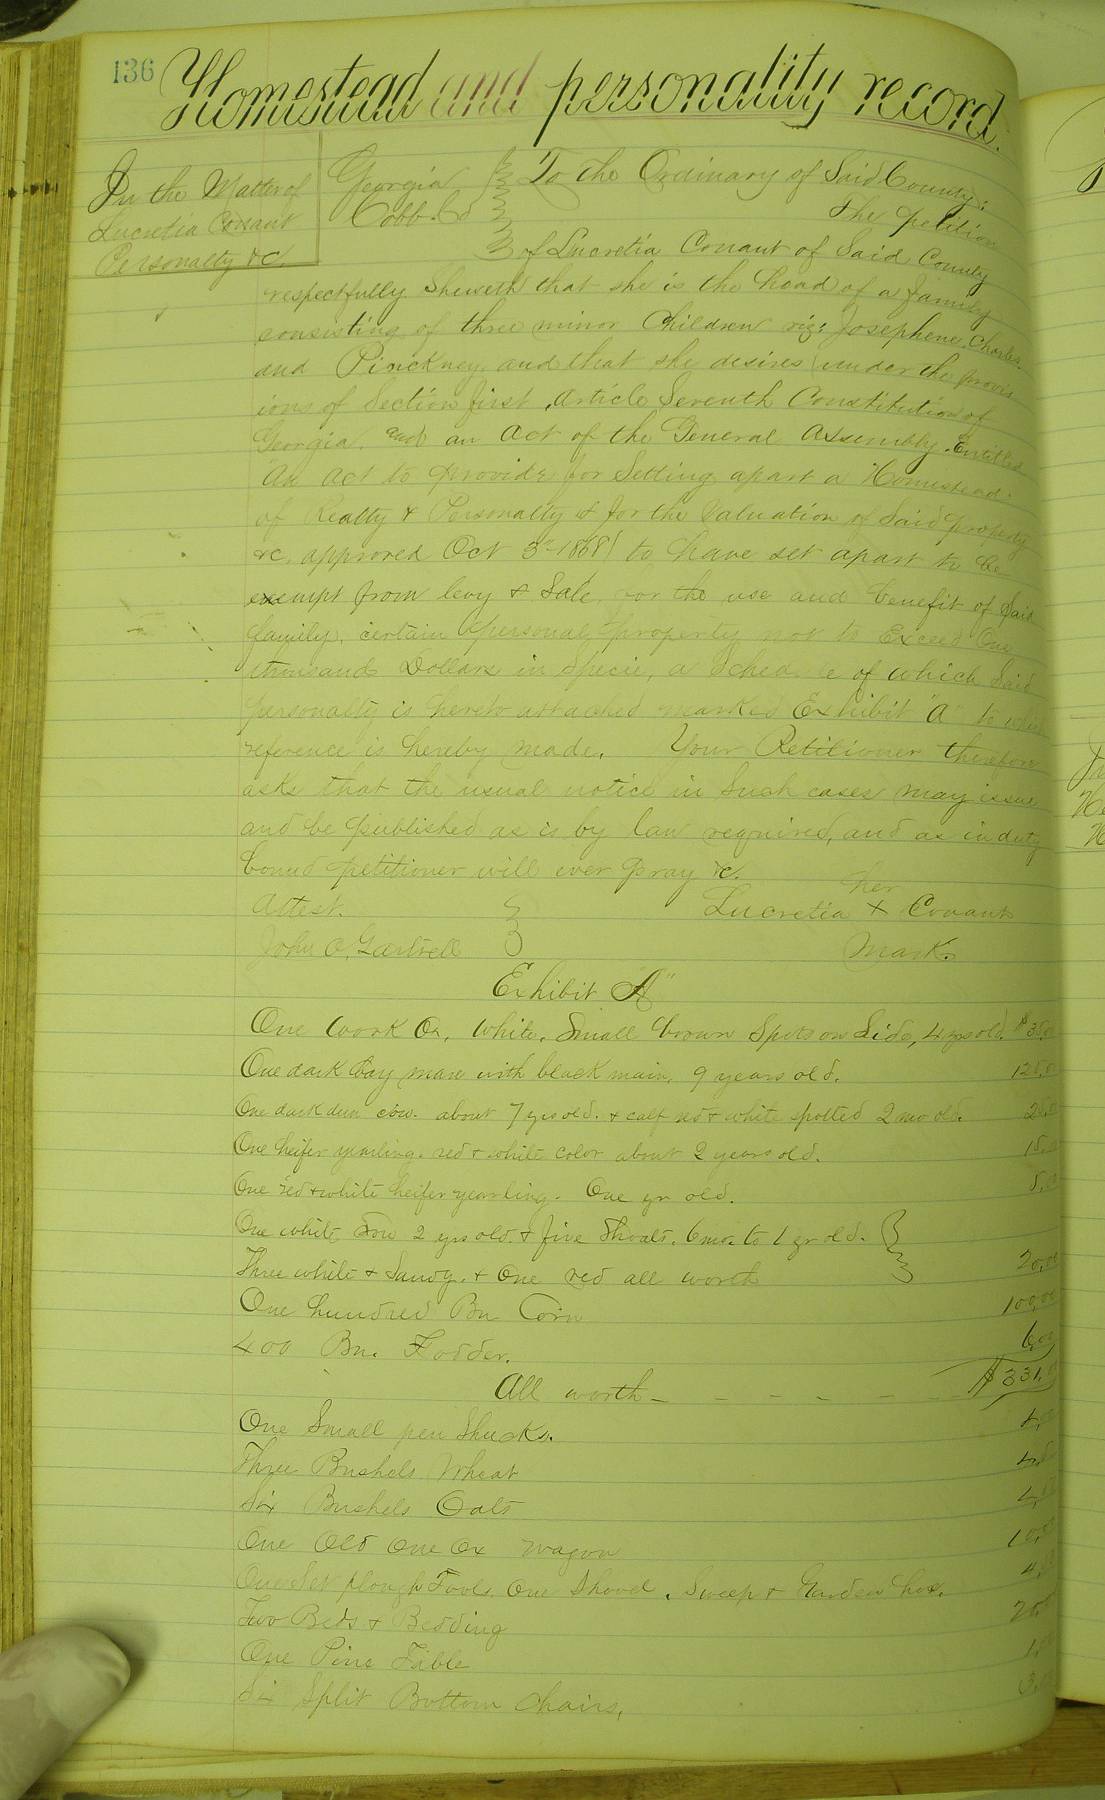 136
Homestead and personality record.
In the Matter of
Lucretia Conant
Personalty &c.
Georgia
Cobb Co
To the Ordinary of Said County:
The petition
of Lucretia Conant of Said County
respectfully Sheweth that she is the head of a family
consisting of three minor Children viz: Josephene, Charles
and Pinckney, and that she desires (under the provis
ions of Section first, Article Seventh Constitution of
Georgia. and an act of the General Assembly. Entitled
An act to provide for Setting apart a Homestead
of Realty & Personalty & for the Valuation of Said property
&c. approved Oct 3" 1868) to have set apart to be
exempt from levy & Sale for the use and benefit of Said
family, certain personal property not to Exceed One
thousand Dollars in Specie, a Schedule of which Said
personalty is hereto attached marked Exhibit "A" to which
reference is hereby made. Your Petitioner therefore
asks that the usual notice in Such cases may issue
and be published as is by law required, and as in duty
bound petitioner will ever pray &c.
Attest. her
John O. Gartrell Lucretia X Conant
Mark.
Exhibit "A"
One work Ox, White, Small brown Spots on Side, 4 yrs old.
One dark bay mare with black main, 9 years old.
One dark dun cow. about 7 yrs old. & calf red & white spotted 2 mo old.
One heifer yearling. red & white color about 2 years old.
One red & white heifer yearling. One yr old.
One white Sow 2 yrs old. & five Shoats. 6 mo. to 1 yr old.
Three white & Sandy. & One red all worth 20,00
One hundred Bu Corn 100,00
400 Bu. Fodder. 6,00
All worth - - - - - - $331,00
One Small pen Shucks.
Three Bushels Wheat
Six Bushels Oats
One Old One Ox Wagon 10,
One Set plough Tools. One Shovel. Sweep & Garden hoe. 4,
Two Beds & Bedding
One Pine Table 1,
Six Split Bottom Chairs, 3,